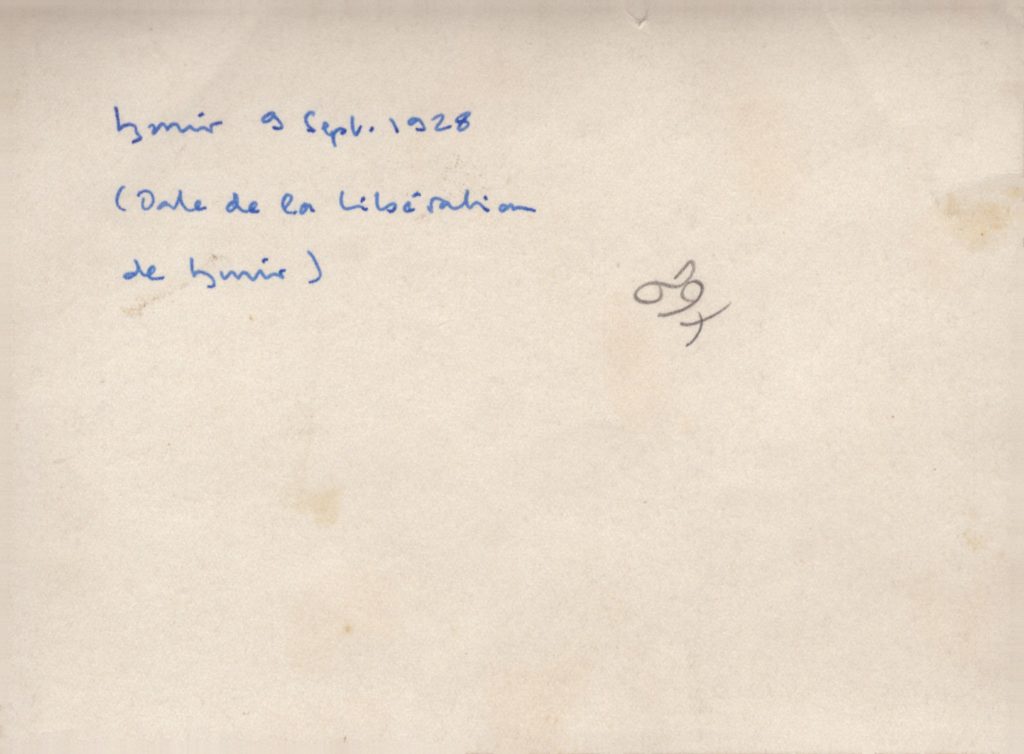 Izmir 9 Sept. 1928
(Date de la Libération
de Izmir)